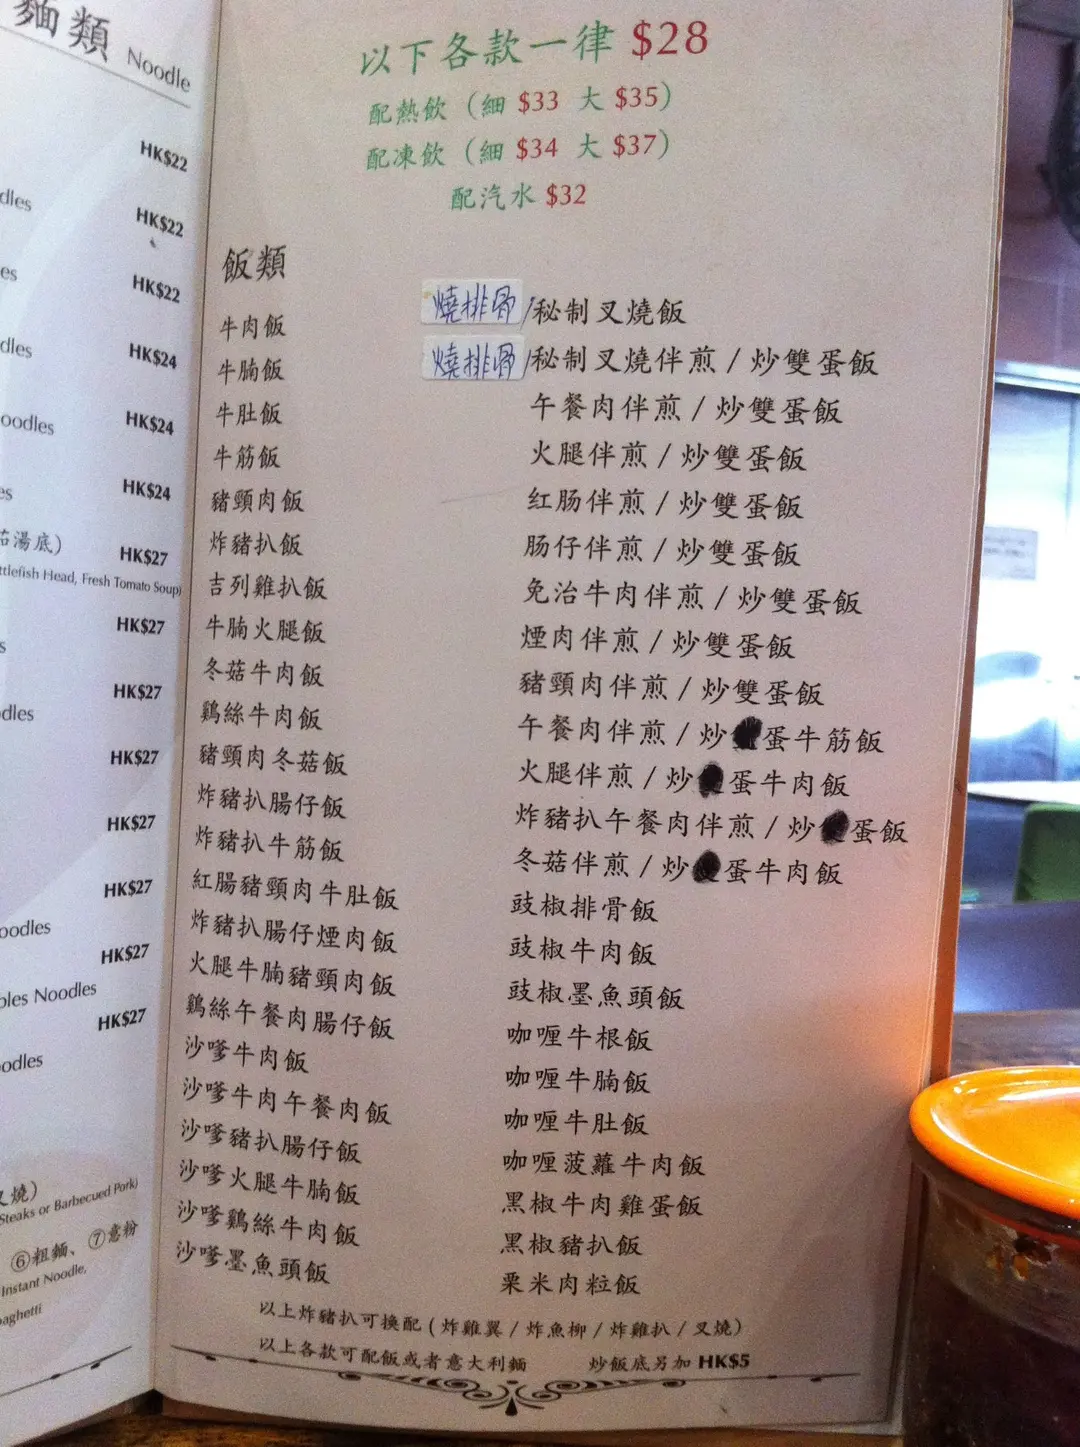 麵類 Noodle
HK$22
dles
HK$22
es
HK$22
dles
HK$24
oodles
HK$24
es
HK$24
茄湯底）
HK$27
ttlefish Head, Fresh Tomato Soup)
HK$27
s
HK$27
dles
HK$27
HK$27
HK$27
oodles
HK$27
bles Noodles
HK$27
oodles
叉燒）
Steaks or Barbecued Pork)
⑥粗麵、⑦意粉
Instant Noodle,
paghetti
以下各款一律 $28
配熱飲（細 $33 大 $35）
配凍飲（細 $34 大 $37）
配汽水 $32
飯類
牛肉飯
牛腩飯
牛肚飯
牛筋飯
豬頸肉飯
炸豬扒飯
吉列雞扒飯
牛腩火腿飯
冬菇牛肉飯
鷄絲牛肉飯
豬頸肉冬菇飯
炸豬扒腸仔飯
炸豬扒牛筋飯
紅腸豬頸肉牛肚飯
炸豬扒腸仔煙肉飯
火腿牛腩豬頸肉飯
鷄絲午餐肉腸仔飯
沙嗲牛肉飯
沙嗲牛肉午餐肉飯
沙嗲豬扒腸仔飯
沙嗲火腿牛腩飯
沙嗲鷄絲牛肉飯
沙嗲墨魚頭飯
燒排骨/秘制叉燒飯
燒排骨/秘制叉燒伴煎 / 炒雙蛋飯
午餐肉伴煎 / 炒雙蛋飯
火腿伴煎 / 炒雙蛋飯
红肠伴煎 / 炒雙蛋飯
肠仔伴煎 / 炒雙蛋飯
免治牛肉伴煎 / 炒雙蛋飯
煙肉伴煎 / 炒雙蛋飯
豬頸肉伴煎 / 炒雙蛋飯
午餐肉伴煎 / 炒蛋牛筋飯
火腿伴煎 / 炒蛋牛肉飯
炸豬扒午餐肉伴煎 / 炒蛋飯
冬菇伴煎 / 炒蛋牛肉飯
豉椒排骨飯
豉椒牛肉飯
豉椒墨魚頭飯
咖喱牛根飯
咖喱牛腩飯
咖喱牛肚飯
咖喱菠蘿牛肉飯
黑椒牛肉雞蛋飯
黑椒豬扒飯
栗米肉粒飯
以上炸豬扒可換配 ( 炸雞翼 / 炸魚柳 / 炸雞扒 / 叉燒)
以上各款可配飯或者意大利麵 炒飯底另加 HK$5